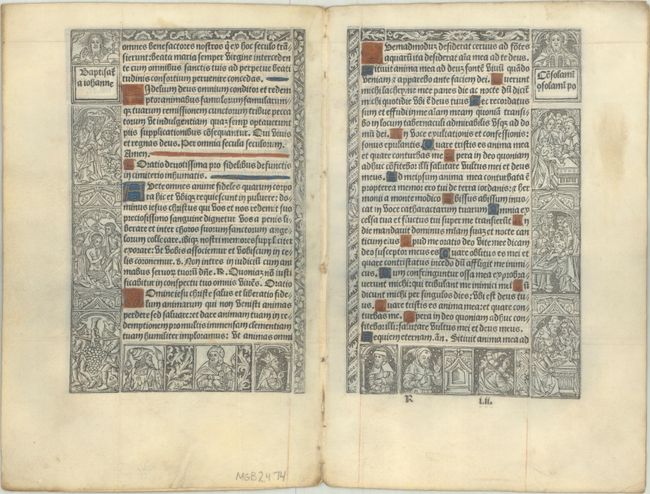 Baptisat᷒
a iohanne
omnes benefactores nostros q̄ ex hoc seculo trā⸗
sierunt: beata maria semper virgine interceden
te cum omnibus sanctis tuis ad perpetue beati
tudinis consortium peruenire concedas.
Fidelium deus omnium conditor et redem
ptor: animabus famulorum famularum⸗
q; tuarum remissionem cunctorum tribue pecca
torum: vt indulgentiam quā semp̄ optauerunt
piis supplicationibus cōsequantur. Qui viuis
et regnas deus. Per omnia secula seculorum.
Amen.
Oratio deuotissima pro fidelibus defunctis
in cimiterio inhumatis.
Auete omnes anime fideles quarum corpo
ra hic et vbiq; requiescunt in puluere: do⸗
minus iesus christus qui vos et nos redemit suo
preciosissimo sanguine dignetur vos a penis li
berare et inter choros suorum sanctorum ange⸗
lorum collocare. ibiq; nostri memores suppliciter
exorare: vt vobis associemur et vobiscum in ce⸗
lis coronemur. v̄. Non intres in iudicium cum ani
mabus seruor̄ tuorū dn̄e. R. Quoniaꝫ nō iusti
ficabitur in conspectu tuo omnis viuēs. Oratio
Domine iesu christe salus et liberatio fide⸗
lium animarum qui non venisti animas
perdere sed saluare: et dare animam tuam in re⸗
demptionem pro multis immensam clementiam
tuam humiliter imploramus: vt animas omni
MGB24 74
Quemadmoduꝫ desiderat ceruus ad fōtes
aquarū: ita desiderat aīa mea ad te deus.
Sitiuit anima mea ad deuꝫ fontē viuū: quādo
veniam et apparebo ante faciem dei. Fuerunt
michi lachryme mee panes die ac nocte: dū dicit̄
michi quotidie vbi ē deus tuus. Hec recordatus
sum et effudi in me aīam meam: quoniā transi⸗
bo in locum tabernaculi admirabilis vsq; ad do⸗
mū dei. In voce exultationis et confessionis:
sonus epulantis. Quare tristis es anima mea
et quare conturbas me. Spera in deo quoniam
adhuc cōfitebor illi: salutare vultus mei et deus
meus. Ad meipsum anima mea conturbata ē
propterea memor ero tui de terra iordanis: et her
monii a monte modico. Abissus abissum inuo⸗
cat in voce catharactarum tuarum. Omnia ex
celsa tua et fluctus tui super me transierūt. In
die mandauit dominus miam̄ suaꝫ et nocte can
ticum eius. Apud me oratio deo vite mee: dicam
deo susceptor meus es. Quare oblitus es mei: et
quare contristatus incedo: dū affligit me inimi⸗
cus. Dum confringuntur ossa mea exproba⸗
uerunt michi: qui tribulant me inimici mei. Dū
dicunt michi per singulos dies: vbi est deus tu⸗
us. Quare tristis es anima mea: et quare con⸗
turbas me. Spera in deo quoniam adhuc con⸗
fitebor illi: salutare vultus mei et deus meus.
Requiem eternam. añ. Sitiuit anima mea ad
R LII.